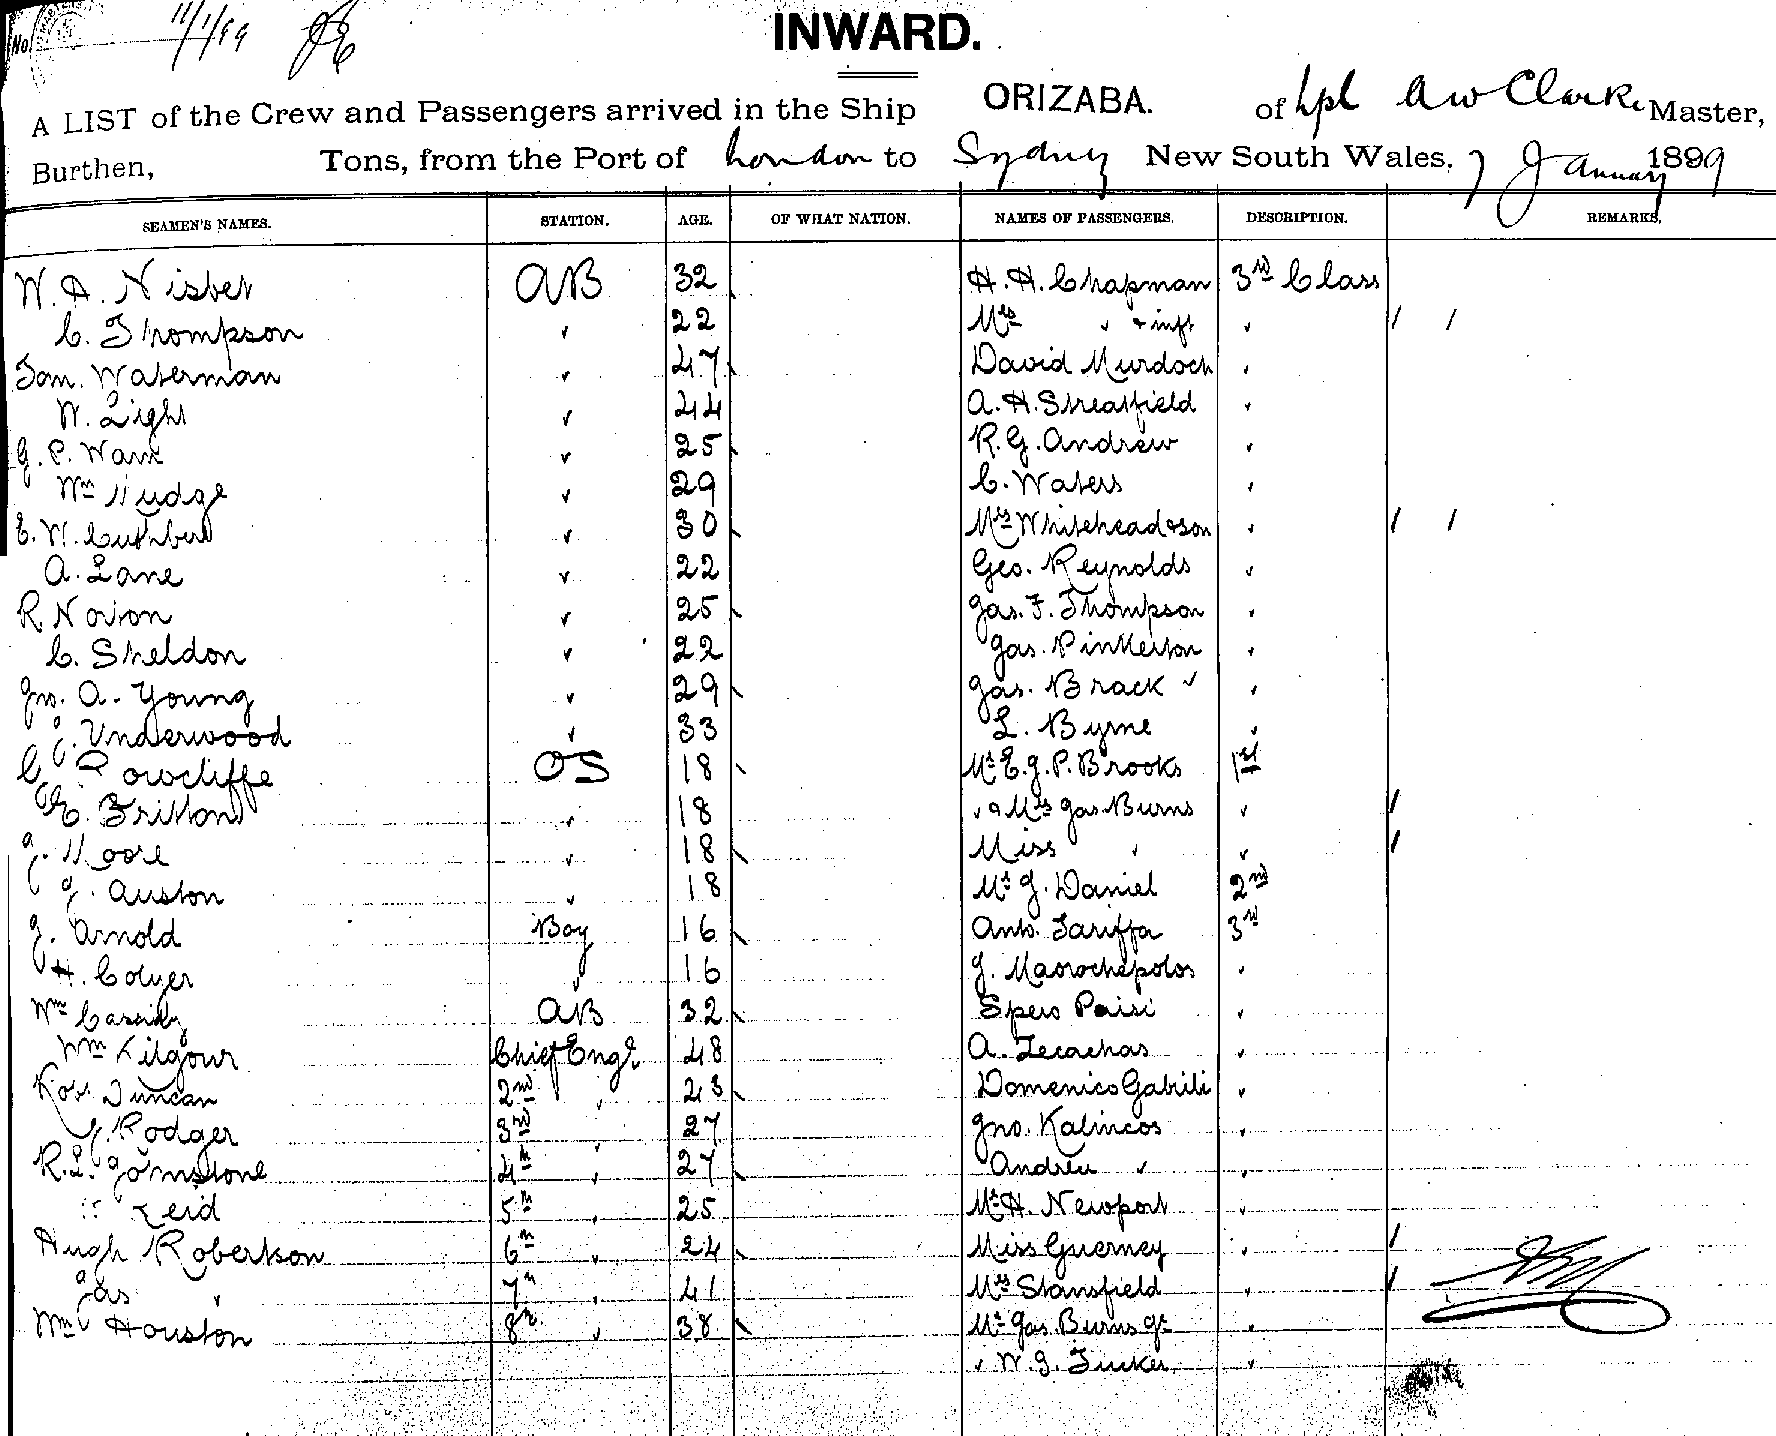 No 11/1/99
INWARD.
A LIST of the Crew and Passengers arrived in the Ship ORIZABA. of Lpl A W Clarke Master,
Burthen, Tons, from the Port of London to Sydney New South Wales, 7 January 1899
SEAMEN'S NAMES. STATION. AGE. OF WHAT NATION. NAMES OF PASSENGERS. DESCRIPTION. REMARKS.
W. A. Nisbet AB 32 H. H. Chapman 3rd Class
C. Thompson " 22 Mrs " + inft " / /
Tom. Waterman " 47 David Murdoch "
W. Light " 44 A. H. Streatfield "
G. P. Ware " 25 R. G. Andrew "
Wm Nudge " 29 C. Waters "
E. W. Cuthbert " 30 Mrs Whitehead & son " / /
A. Lane " 22 Geo. Reynolds "
R. Norton " 25 Jas. F. Thompson "
C. Sheldon " 22 Jas. Pinkerton "
Jno. A. Young " 29 Jas. Brack "
J. Underwood " 33 L. Byrne "
C. Rowcliffe OS 18 Mr E. J. P. Brooks 1st
E. Britton " 18 " & Mrs Jas. Burns " /
J. Moore " 18 Miss " " /
J. Auston " 18 Mr J. Daniel 2nd
J. Arnold Boy 16 Anto. Tariffa 3rd
H. Colyer " 16 J. Mavrochepolos "
Wm Cassidy AB 32 Spero Paisi "
Wm Kilgour Chief Engr 48 A. Zecachas "
Robt Duncan 2nd " 23 Domenico Gabrili "
J. Rodger 3rd " 27 Jno. Kalincos "
R. L. Johnstone 4th " 27 Andrew " "
Reid 5th " 25 Mr H. Newport "
Hugh Robertson 6th " 24 Miss Guerney " /
Jas " 7th " 41 Mrs Stansfield " /
Wm Houston 8th " 38 Mr Jas. Burns Jr "
" W. J. Tucker "